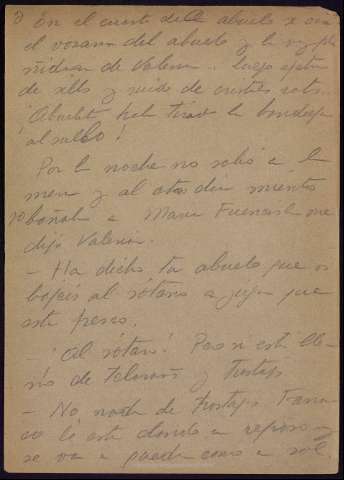 En el cuarto del abuelo se oia
el vozarron del abuelo y la
de Valeria .. luego
de silla y ruido de cristales rotos.
¡Abuelito has tirado la bandeja
al suelo!
Por la noche no salió a la
mesa y al otro dia mientras
bañaba a Maria Fuencisla me
dijo Valeria.
- Ha dicho tu abuelo que os
bajeis al sotano a jugar que
está fresco.
- ¡Al sótano! Pero si está lle-
no de telarañas y trastos
- No nada de trastos
lo está dando un repaso y
se va a quedar como un sol.